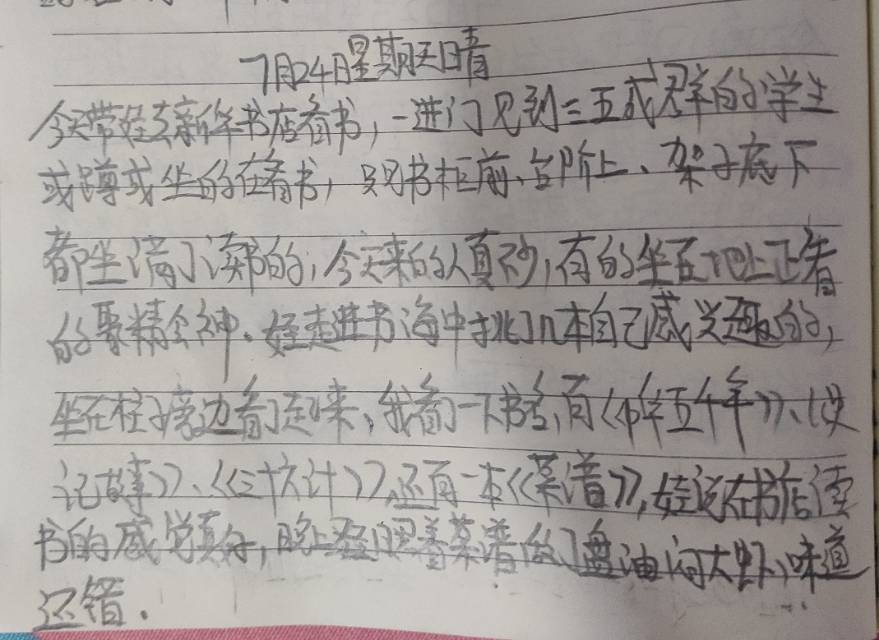 7月24日星期天晴
今天带娃去新华书店看书，一进门见到三五成群的学生
或蹲或坐的在看书，只见书柜前、台阶上、架子底下
都坐满了读书的，今天来的人真不少，有的坐在地上正看
的聚精会神。娃走进书海中挑了几本自己感兴趣的，
坐在柱子旁边看了起来，我看了一下书名，有《中华五千年》、《史
记故事》、《三十六计》，还有一本《菜谱》，娃说在书店读
书的感觉真好，晚上娃照着菜谱做了盘油闷大虾，味道
还错．